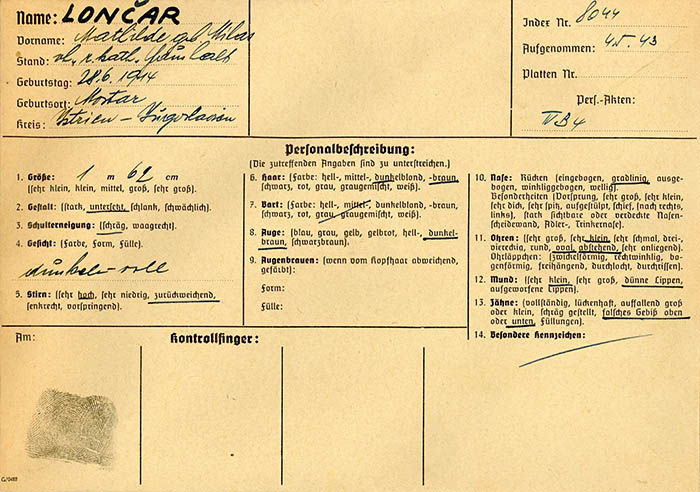 Name: LONČAR
Vorname: Mathilde geb Milas
Stand: vl. r. kath.
Geburtstag: 28.6.1914
Geburtsort: Mostar
Kreis: Istrien - Jugoslavien
Index Nr. 8044
Aufgenommen: 4.5.43
Platten Nr.
Pers.-Akten:
IV B 4
Personalbeschreibung:
(Die zutreffenden Angaben sind zu unterstreichen.)
1. Größe: 1 m 62 cm
(sehr klein, klein, mittel, groß, sehr groß).
2. Gestalt: (stark, untersetzt, schlank, schwächlich).
3. Schulterneigung: (schräg, waagrecht).
4. Gesicht: (Farbe, Form, Fülle).
dunkel - voll
5. Stirn: (sehr hoch, sehr niedrig, zurückweichend,
senkrecht, vorspringend).
6. Haar: (Farbe: hell-, mittel-, dunkelblond, -braun,
schwarz, rot, grau, graugemischt, weiß).
7. Bart: (Farbe: hell-, mittel-, dunkelblond, -braun,
schwarz, rot, grau, graugemischt, weiß).
8. Auge: (blau, grau, gelb, gelbrot, hell-, dunkel-
braun, schwarzbraun).
9. Augenbrauen: (wenn vom Kopfhaar abweichend,
gefärbt):
Form:
Fülle:
10. Nase: Rücken (eingebogen, gradlinig, ausge-
bogen, winkliggebogen, wellig).
Besonderheiten (Vorsprung, sehr groß, sehr klein,
sehr dick, sehr spitz, aufgestülpt, schief, (nach rechts,
links), stark sichtbare oder verdeckte Nasen-
scheidewand, Adler-, Trinkernase).
11. Ohren: (sehr groß, sehr klein, sehr schmal, drei-
viereckig, rund, oval, abstehend, sehr anliegend).
Ohrläppchen: (zwickelförmig, rechtwinklig, bo-
genförmig, freihängend, durchlocht, durchrissen).
12. Mund: (sehr klein, sehr groß, dünne Lippen,
aufgeworfene Lippen).
13. Zähne: (vollständig, lückenhaft, auffallend groß
oder klein, schräg gestellt, falsches Gebiß oben
oder unten, Füllungen).
14. Besondere Kennzeichen:
Am:
Kontrollfinger: